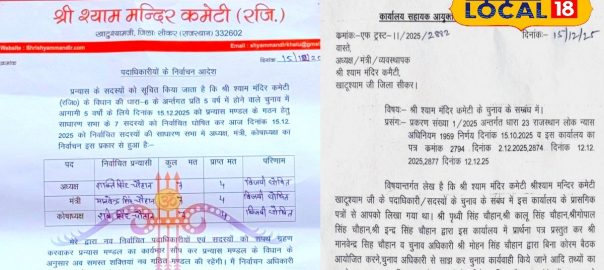 श्री श्याम मन्दिर कमेटी (रजि.)
खाटूश्यामजी, जिला सीकर (राजस्थान) 332602
Website : Shrishyammandir.com
Email : shyammandirkhatu@gmail.com
क्रमांक
दिनांक 15/12/25
पदाधिकारीयों के निर्वाचन आदेश
प्रन्यास के सदस्यों को सूचित किया जाता है कि श्री श्याम मंदिर कमेटी
(रजि0) के विधान की धारा-6 के अर्न्तगत प्रति 5 वर्ष में होने वाले चुनाव में
आगामी 5 वर्षों के लिये दिनांक 15.12.2025 को प्रन्यास मण्डल के गठन हेतु
साधारण सभा के 7 सदस्यों को निर्वाचित घोषित कर आज दिनांक 15.12.
2025 को निर्वाचित सदस्यों की साधारण सभा में अध्यक्ष, मंत्री, कोषाध्यक्ष का
निर्वाचन इस प्रकार से हुआ है:-
पद निर्वाचित प्रन्यासी कुल मत प्राप्त मत परिणाम
अध्यक्ष शक्ति सिंह चौहान 7 4 विजयी घोषित
मंत्री मानवेन्द्र सिंह चौहान 7 4 विजयी घोषित
कोषाध्यक्ष सिंह चौहान 7 4 विजयी घोषित
मेरे द्वारा नव निर्वाचित पदाधिकारीयों एवं सदस्यों को शपथ ग्रहण
करवाकर प्रन्यास मण्डल का कार्यभार सौंप कर प्रन्यास मण्डल के विधान के
अनुसार अब समस्त शक्तियां नव गठित मण्डल की रहेगी। मैं निर्वाचन अधिकारी
LOCAL 18
कार्यालय सहायक आयुक्त
क्रमांक:-एफ ट्रस्ट-11/2025/2882
दिनांक:- 15/12/25
वास्ते,
अध्यक्ष/मंत्री/व्यवस्थापक
श्री श्याम मंदिर कमेटी,
खाटूश्याम जी जिला सीकर।
विषय:- श्री श्याम मंदिर कमेटी के चुनाव के सबंध में।
प्रसंग:- प्रकरण संख्या 1/2025 अन्तर्गत धारा 23 राजस्थान लोक न्यास
अधिनियम 1959 निर्णय दिनांक 15.10.2025 व इस कार्यालय का
पत्र क्रमांक 2794 दिनांक 2.12.2025,2874 दिनांक 12.12.
2025,2877 दिनांक 12.12.25
विषयान्तर्गत लेख है कि श्री श्याम मंदिर कमेटी श्रीश्याम मन्दिर कमेटी
खाटूश्याम जी के पदाधिकारी/सदस्यों के चुनाव के संबंध में इस कार्यालय के प्रासगिक
पत्रों से आपको लिखा गया था। श्री पृथ्वी सिंह चौहान, श्री कालू सिंह चौहान, श्रीगोपाल
सिंह चौहान, श्री इन्द्र सिंह चौहान द्वारा इस कार्यालय में प्रार्थना पत्र प्रस्तुत कर श्री
मानवेन्द्र सिंह चौहान व चुनाव अधिकारी श्री मोहन सिंह चौहान द्वारा बिना कोरम बैठक
आयोजित करने, चुनाव अधिकारी से साझ कर चुनाव कार्यवाही किये जाने आदि तथ्यों का